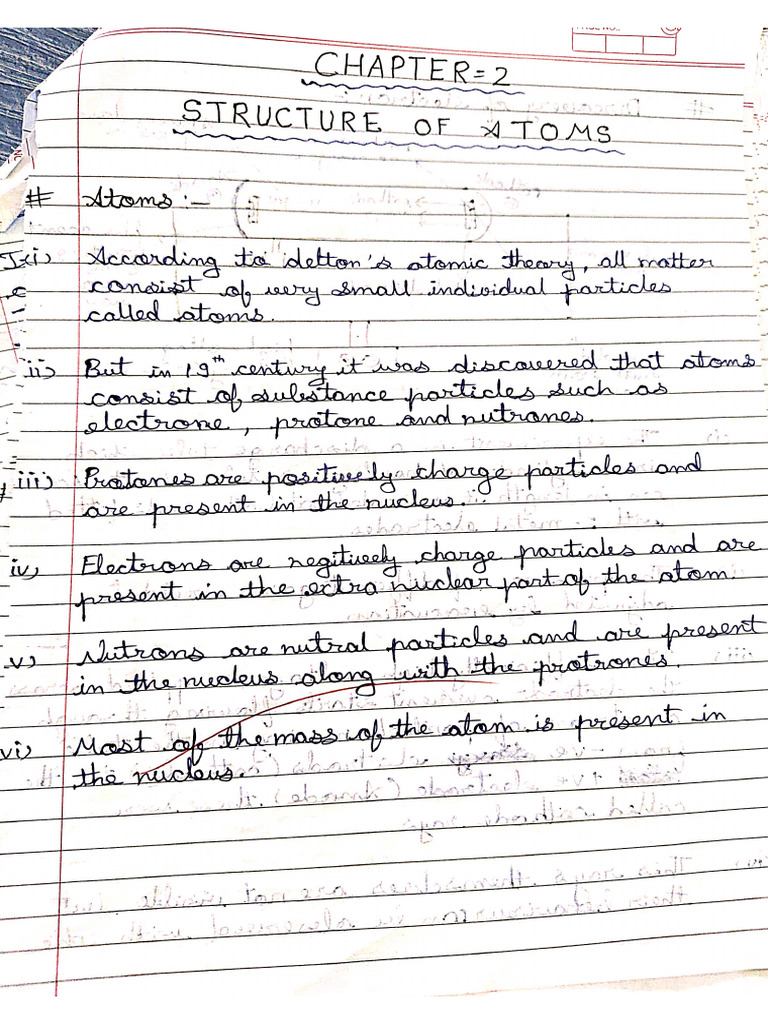 CHAPTER=2
STRUCTURE OF ATOMS
# Atoms :-
i) According to delton's atomic theory, all matter
consist of very small individual particles
called atoms.
ii) But in 19th century it was discovered that atoms
consist of substance particles such as
electrone, protone and nutrones.
iii) Protones are positively charge particles and
are present in the nucleus.
iv) Electrons are negitively charge particles and are
present in the extra nuclear part of the atom.
v) Nutrons are nutral particles and are present
in the nucleus along with the protrones.
vi) Most of the mass of the atom is present in
the nucleus.